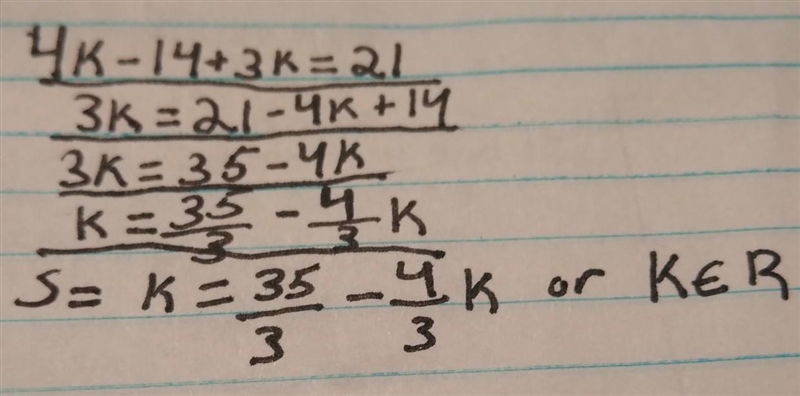 4K - 14 + 3K = 21
3K = 21 - 4K + 14
3K = 35 - 4K
K = 35/3 - 4/3 K
S = K = 35/3 - 4/3 K or K ∈ R